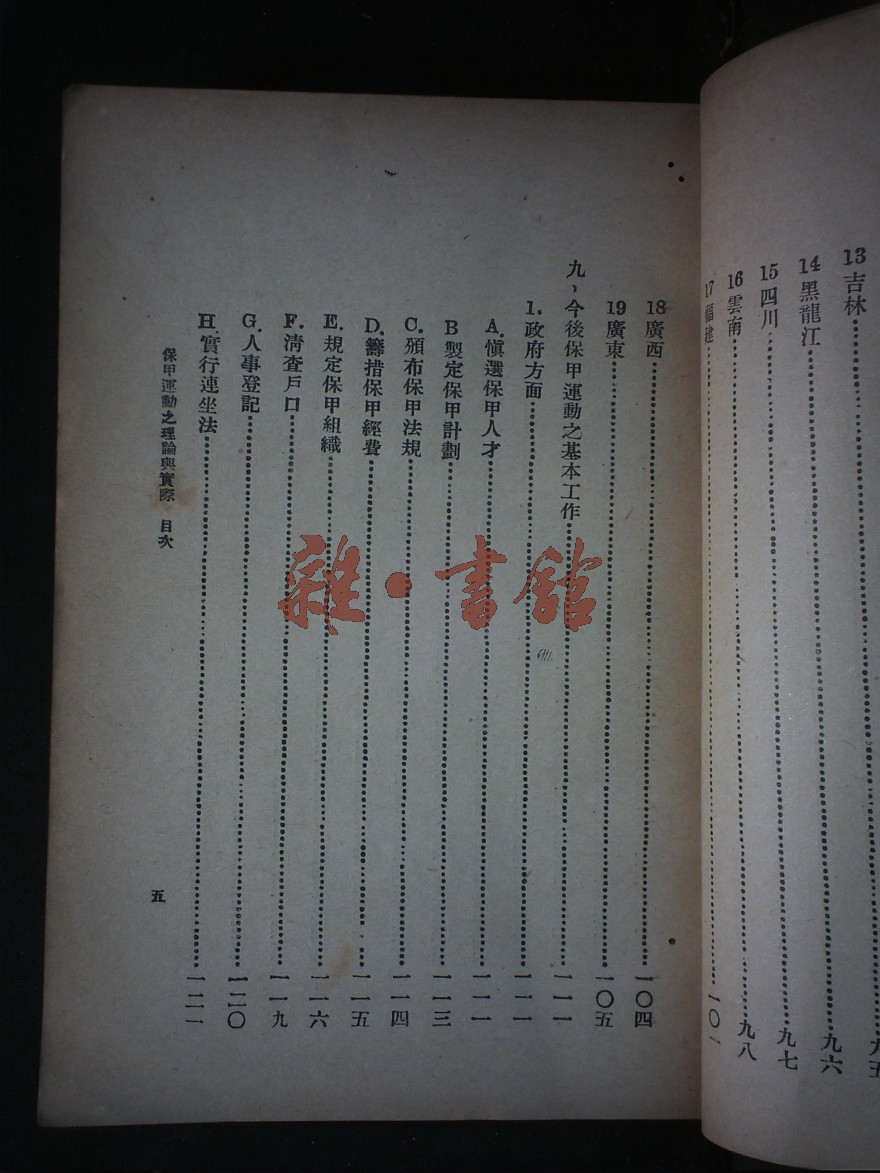 13吉林……九五
14黑龍江……九六
15四川……九七
16雲南……九八
17福建……一〇一
18廣西……一〇四
19廣東……一〇五
九、今後保甲運動之基本工作……一一一
1.政府方面……一一一
A.愼選保甲人才……一一一
B製定保甲計劃……一一三
C.頒布保甲法規……一一四
D.籌措保甲經費……一一五
E.規定保甲組織……一一六
F.淸查戶口……一一九
G.人事登記……一二〇
H.實行連坐法……一二一
保甲運動之理論與實際 目次
五
雜·書館